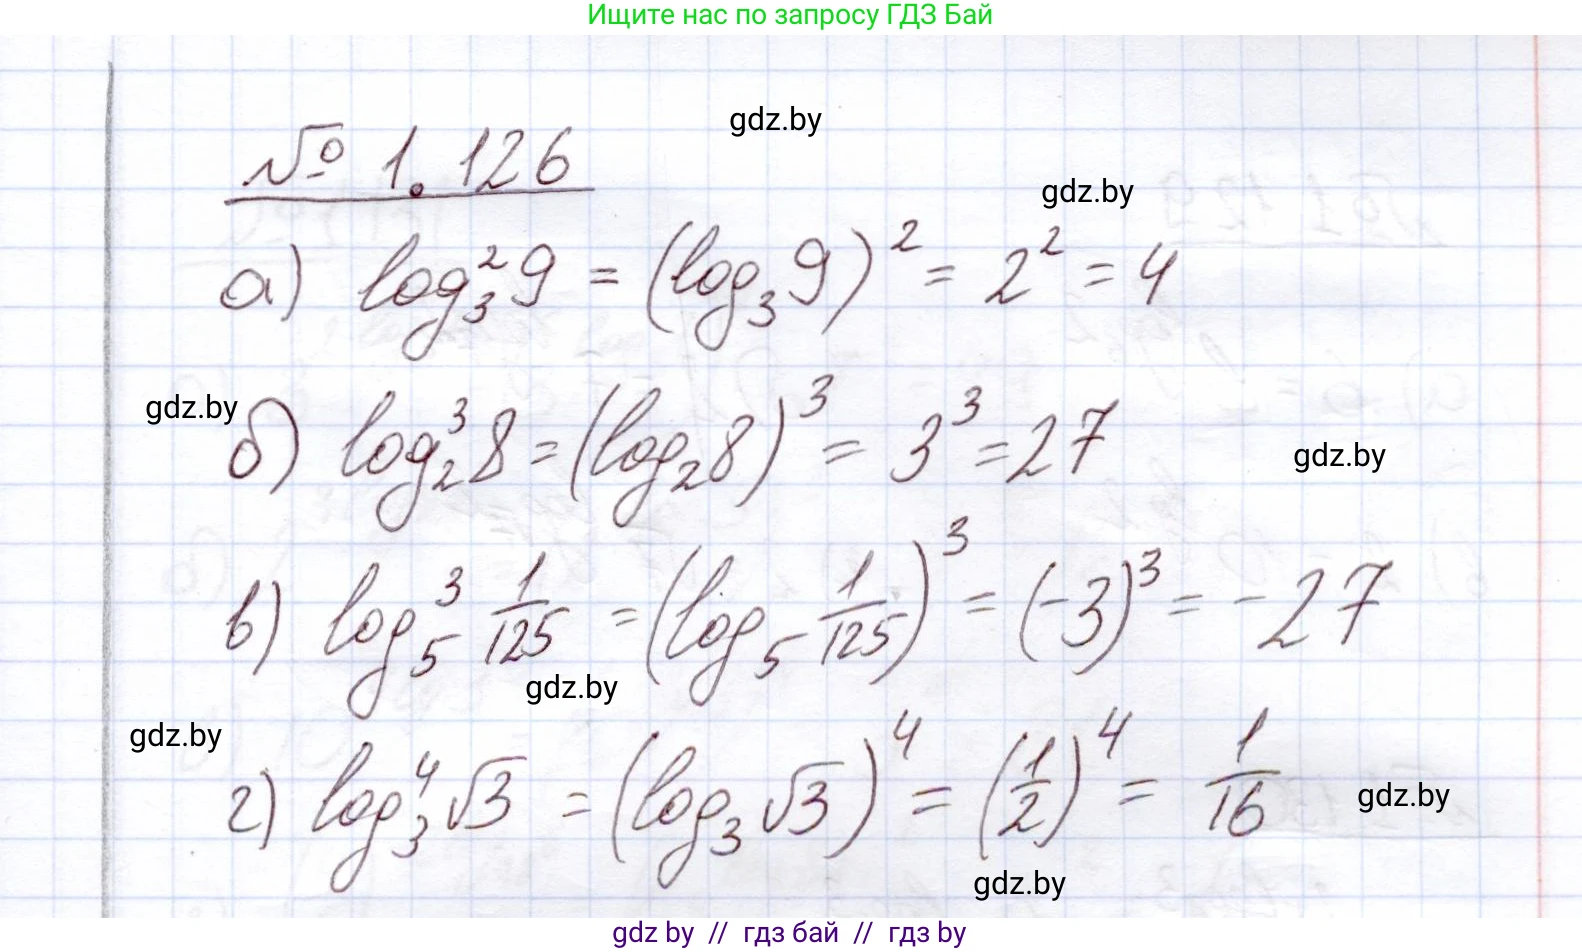 Ищите нас по запросу ГДЗ Бай
gdz.by
№ 1.126
gdz.by
а) log₃²9 = (log₃9)² = 2² = 4
gdz.by
б) log₂³8 = (log₂8)³ = 3³ = 27
gdz.by
в) log₅³ 1/125 = (log₅ 1/125)³ = (-3)³ = -27
gdz.by
gdz.by
г) log₃⁴√3 = (log₃√3)⁴ = (1/2)⁴ = 1/16
gdz.by
gdz.by
gdz by // гдз бай // гдз by